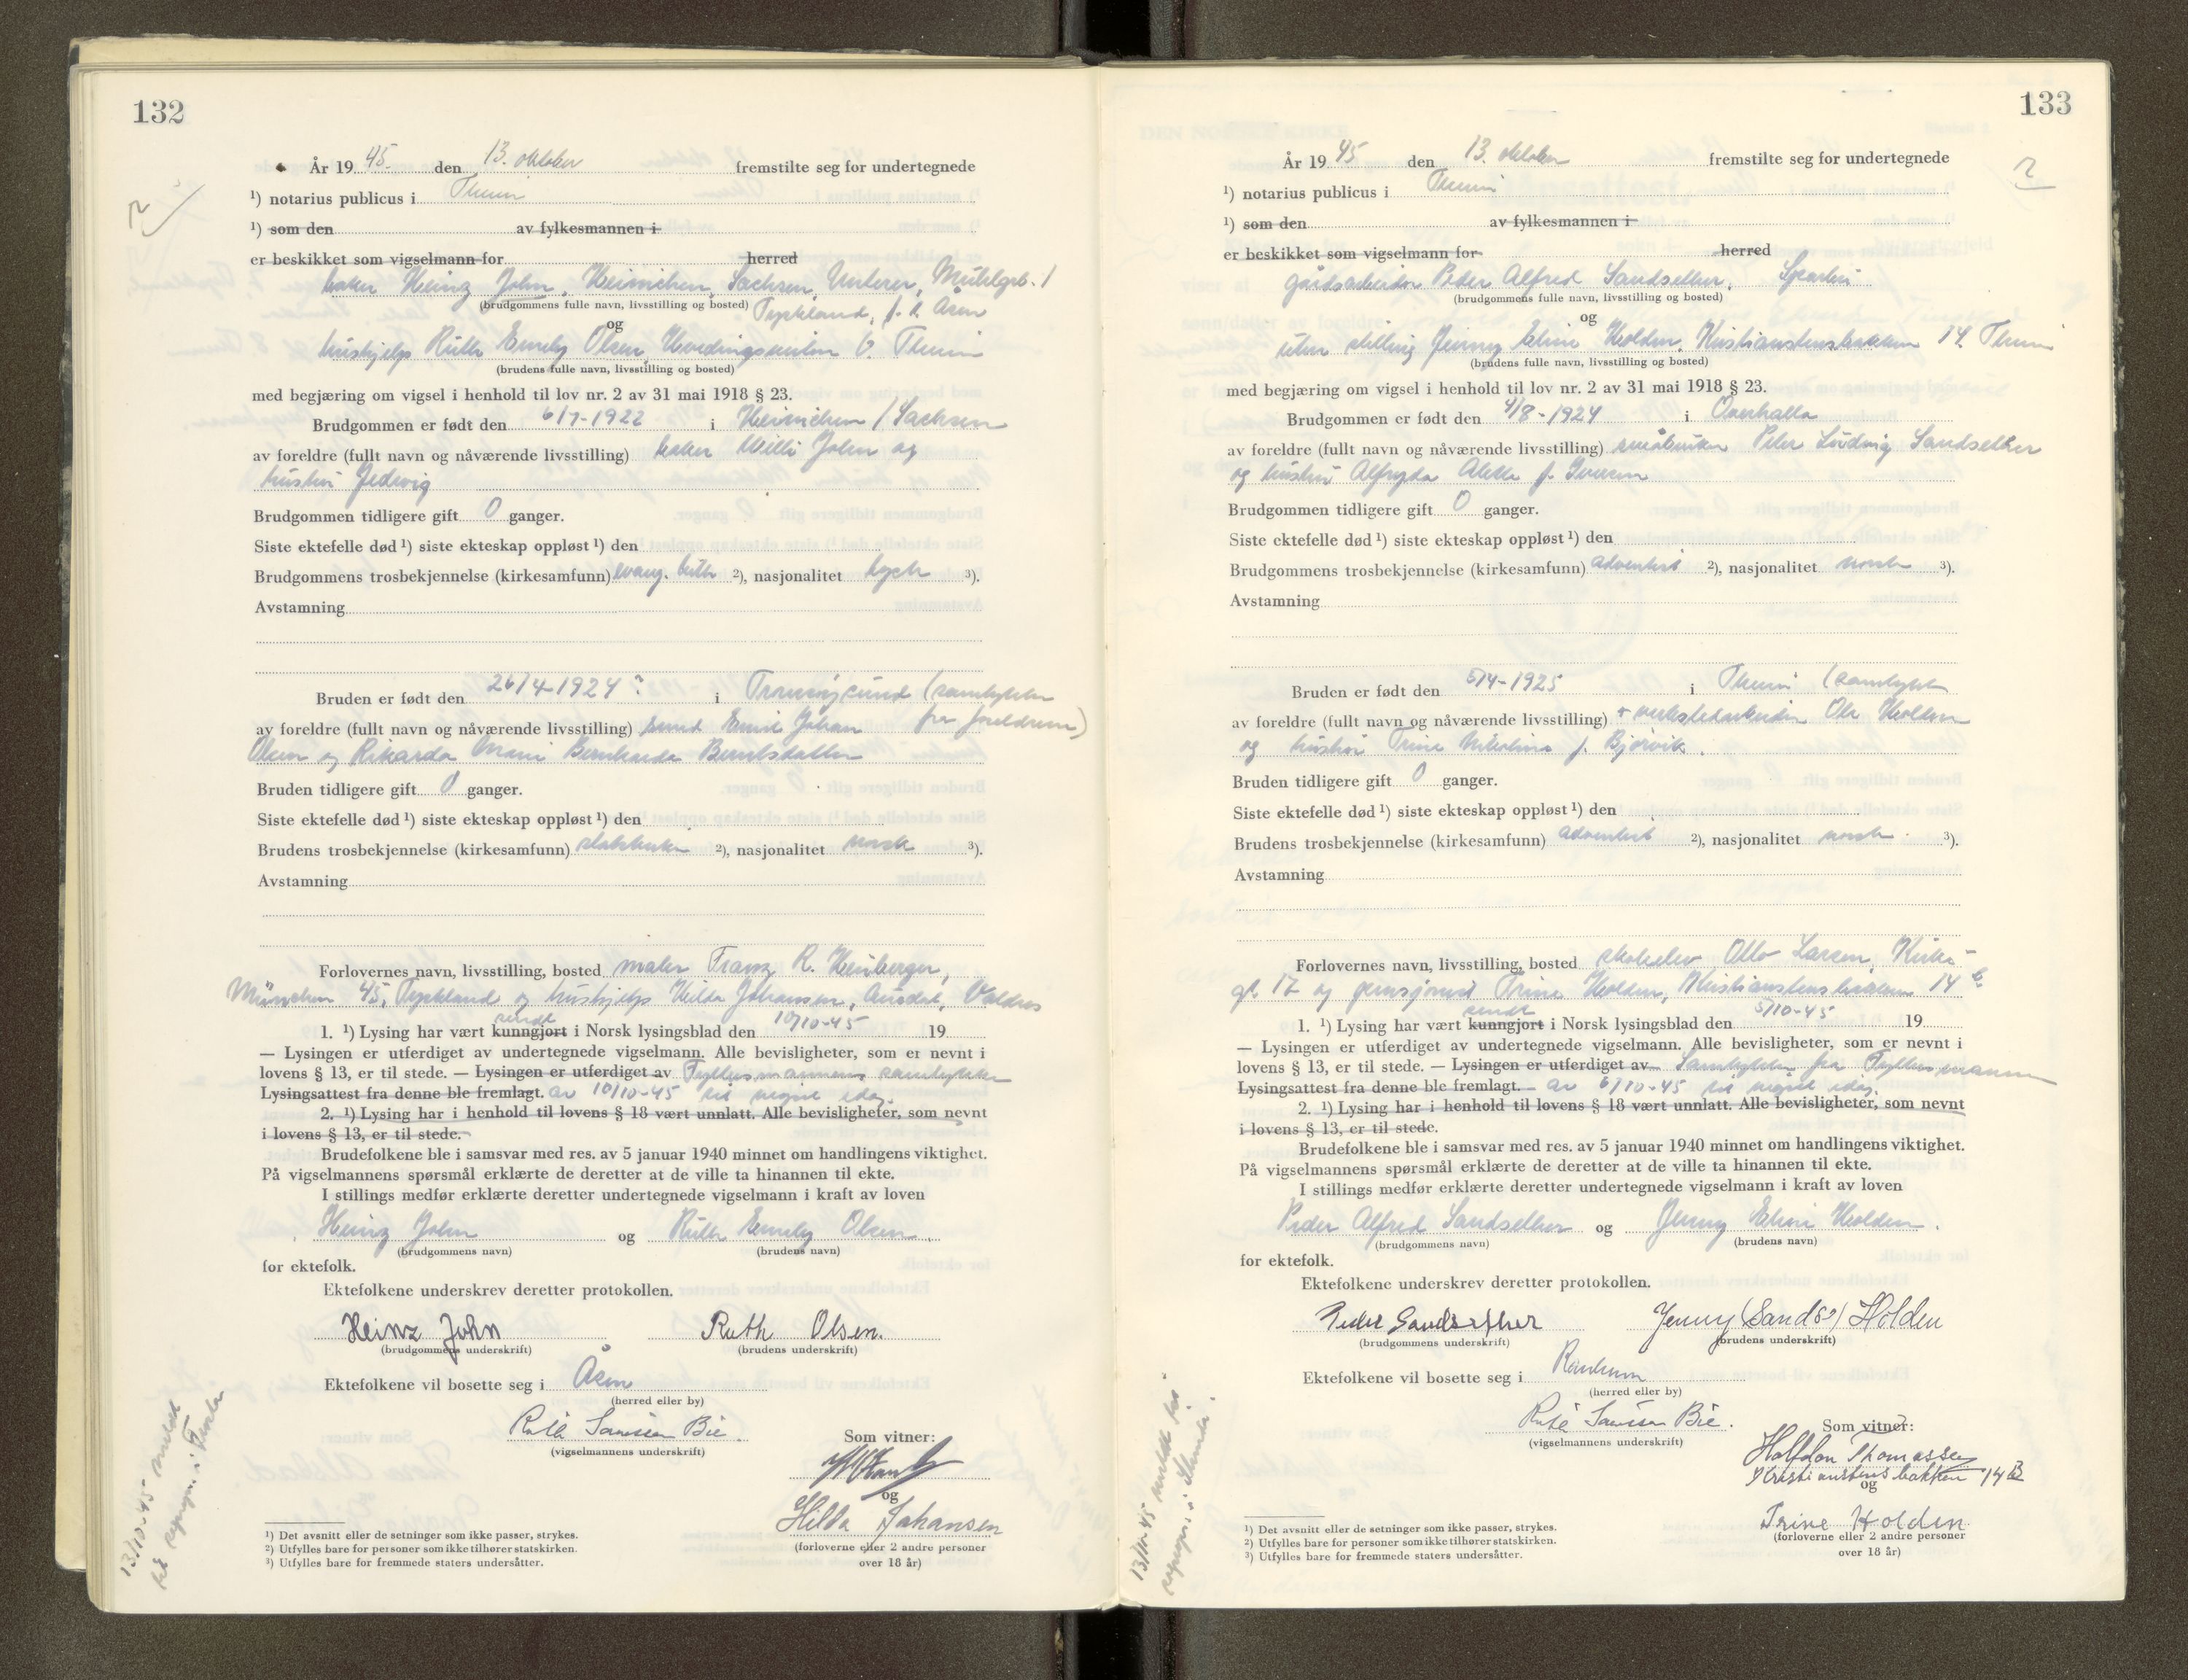 132
År 19 45 den 13. oktober fremstilte seg for undertegnede
¹) notarius publicus i
¹) som den av fylkesmannen i
er beskikket som vigselmann for herred
baker Heinz John, Heinichen, Sachsen, Unterer, Mühlgrb. 1
(brudgommens fulle navn, livsstilling og bosted) Tyskland, f. t. Åsen
og
hushjelp Ruth Emely Olsen, 6.
(brudens fulle navn, livsstilling og bosted)
med begjæring om vigsel i henhold til lov nr. 2 av 31 mai 1918 § 23.
Brudgommen er født den 6/7-1922 i Heinichen / Sachsen
av foreldre (fullt navn og nåværende livsstilling) baker Willi John og
hustru Jedwig
Brudgommen tidligere gift 0 ganger.
Siste ektefelle død ¹) siste ekteskap oppløst ¹) den
Brudgommens trosbekjennelse (kirkesamfunn) evang. luth ²), nasjonalitet tysk ³).
Avstamning
Bruden er født den 26/4-1924 i Tromsøysund (samtykke
av foreldre (fullt navn og nåværende livsstilling) Emil Johan fra foreldrene)
Olsen og Rikarda Marie Bernharda Berntsdatter
Bruden tidligere gift 0 ganger.
Siste ektefelle død ¹) siste ekteskap oppløst ¹) den
Brudens trosbekjennelse (kirkesamfunn) statskirken ²), nasjonalitet norsk ³).
Avstamning
Forlovernes navn, livsstilling, bosted maler Franz R. Heinberger,
München 45, Tyskland og hushjelp Hilda Johansen, Aurdal, Valdres
sendt
1. ¹) Lysing har vært kunngjort i Norsk lysingsblad den 10/10-45 19
— Lysingen er utferdiget av undertegnede vigselmann. Alle bevisligheter, som er nevnt i
lovens § 13, er til stede. — Lysingen er utferdiget av Fylkesmannens samtykke
Lysingsattest fra denne ble fremlagt. av 10/10-45 til vigsel idag.
2. ¹) Lysing har i henhold til lovens § 18 vært unnlatt. Alle bevisligheter, som nevnt
i lovens § 13, er til stede.
Brudefolkene ble i samsvar med res. av 5 januar 1940 minnet om handlingens viktighet.
På vigselmannens spørsmål erklærte de deretter at de ville ta hinannen til ekte.
I stillings medfør erklærte deretter undertegnede vigselmann i kraft av loven
Heinz John og Ruth Emely Olsen.
(brudgommens navn) (brudens navn)
for ektefolk.
Ektefolkene underskrev deretter protokollen.
Heinz John Ruth Olsen.
(brudgommens underskrift) (brudens underskrift)
Ektefolkene vil bosette seg i Åsen
(herred eller by)
Bie.
(vigselmannens underskrift) Som vitner:
og
Hilda Johansen
(forloverne eller 2 andre personer
over 18 år)
¹) Det avsnitt eller de setninger som ikke passer, strykes.
²) Utfylles bare for personer som ikke tilhører statskirken.
³) Utfylles bare for fremmede staters undersåtter.
13/10-45 meldt
133
År 19 45 den 13. oktober fremstilte seg for undertegnede
¹) notarius publicus i
¹) som den av fylkesmannen i
er beskikket som vigselmann for herred
gårdsarbeider Peder Alfred Sandsether, Sparbu
(brudgommens fulle navn, livsstilling og bosted)
og
uten stilling Jenny Eline Holden, Kristianstensbakken 14,
(brudens fulle navn, livsstilling og bosted)
med begjæring om vigsel i henhold til lov nr. 2 av 31 mai 1918 § 23.
Brudgommen er født den 4/8-1924 i Overhalla
av foreldre (fullt navn og nåværende livsstilling) småbruker Peter Ludvig Sandsether
og hustru Alfryda Alette f. Iversen
Brudgommen tidligere gift 0 ganger.
Siste ektefelle død ¹) siste ekteskap oppløst ¹) den
Brudgommens trosbekjennelse (kirkesamfunn) adventist ²), nasjonalitet norsk ³).
Avstamning
Bruden er født den 5/4-1925 i (samtykke
av foreldre (fullt navn og nåværende livsstilling) + verkstedarbeider Ole Holden
og hustru Trine Nikoline f. Bjørvik.
Bruden tidligere gift 0 ganger.
Siste ektefelle død ¹) siste ekteskap oppløst ¹) den
Brudens trosbekjennelse (kirkesamfunn) adventist ²), nasjonalitet norsk ³).
Avstamning
Forlovernes navn, livsstilling, bosted skoleelev Otto Larsen, Kirke-
gt. 17 og Trine Holden, Kristianstensbakken 14 b
sendt
1. ¹) Lysing har vært kunngjort i Norsk lysingsblad den 5/10-45 19
— Lysingen er utferdiget av undertegnede vigselmann. Alle bevisligheter, som er nevnt i
lovens § 13, er til stede. — Lysingen er utferdiget av Samtykke fra Fylkesmannen
Lysingsattest fra denne ble fremlagt. av 6/10-45 til vigsel idag.
2. ¹) Lysing har i henhold til lovens § 18 vært unnlatt. Alle bevisligheter, som nevnt
i lovens § 13, er til stede.
Brudefolkene ble i samsvar med res. av 5 januar 1940 minnet om handlingens viktighet.
På vigselmannens spørsmål erklærte de deretter at de ville ta hinannen til ekte.
I stillings medfør erklærte deretter undertegnede vigselmann i kraft av loven
Peder Alfred Sandsether og Jenny Eline Holden.
(brudgommens navn) (brudens navn)
for ektefolk.
Ektefolkene underskrev deretter protokollen.
Peder Sandsether Jenny (Sands) Holden
(brudgommens underskrift) (brudens underskrift)
Ektefolkene vil bosette seg i Ranheim
(herred eller by)
Bie.
(vigselmannens underskrift) Som vitner:
Halfdan Thomassen
Kristianstensbakken 14 B
og
Trine Holden
(forloverne eller 2 andre personer
over 18 år)
¹) Det avsnitt eller de setninger som ikke passer, strykes.
²) Utfylles bare for personer som ikke tilhører statskirken.
³) Utfylles bare for fremmede staters undersåtter.
13/10-45 meldt